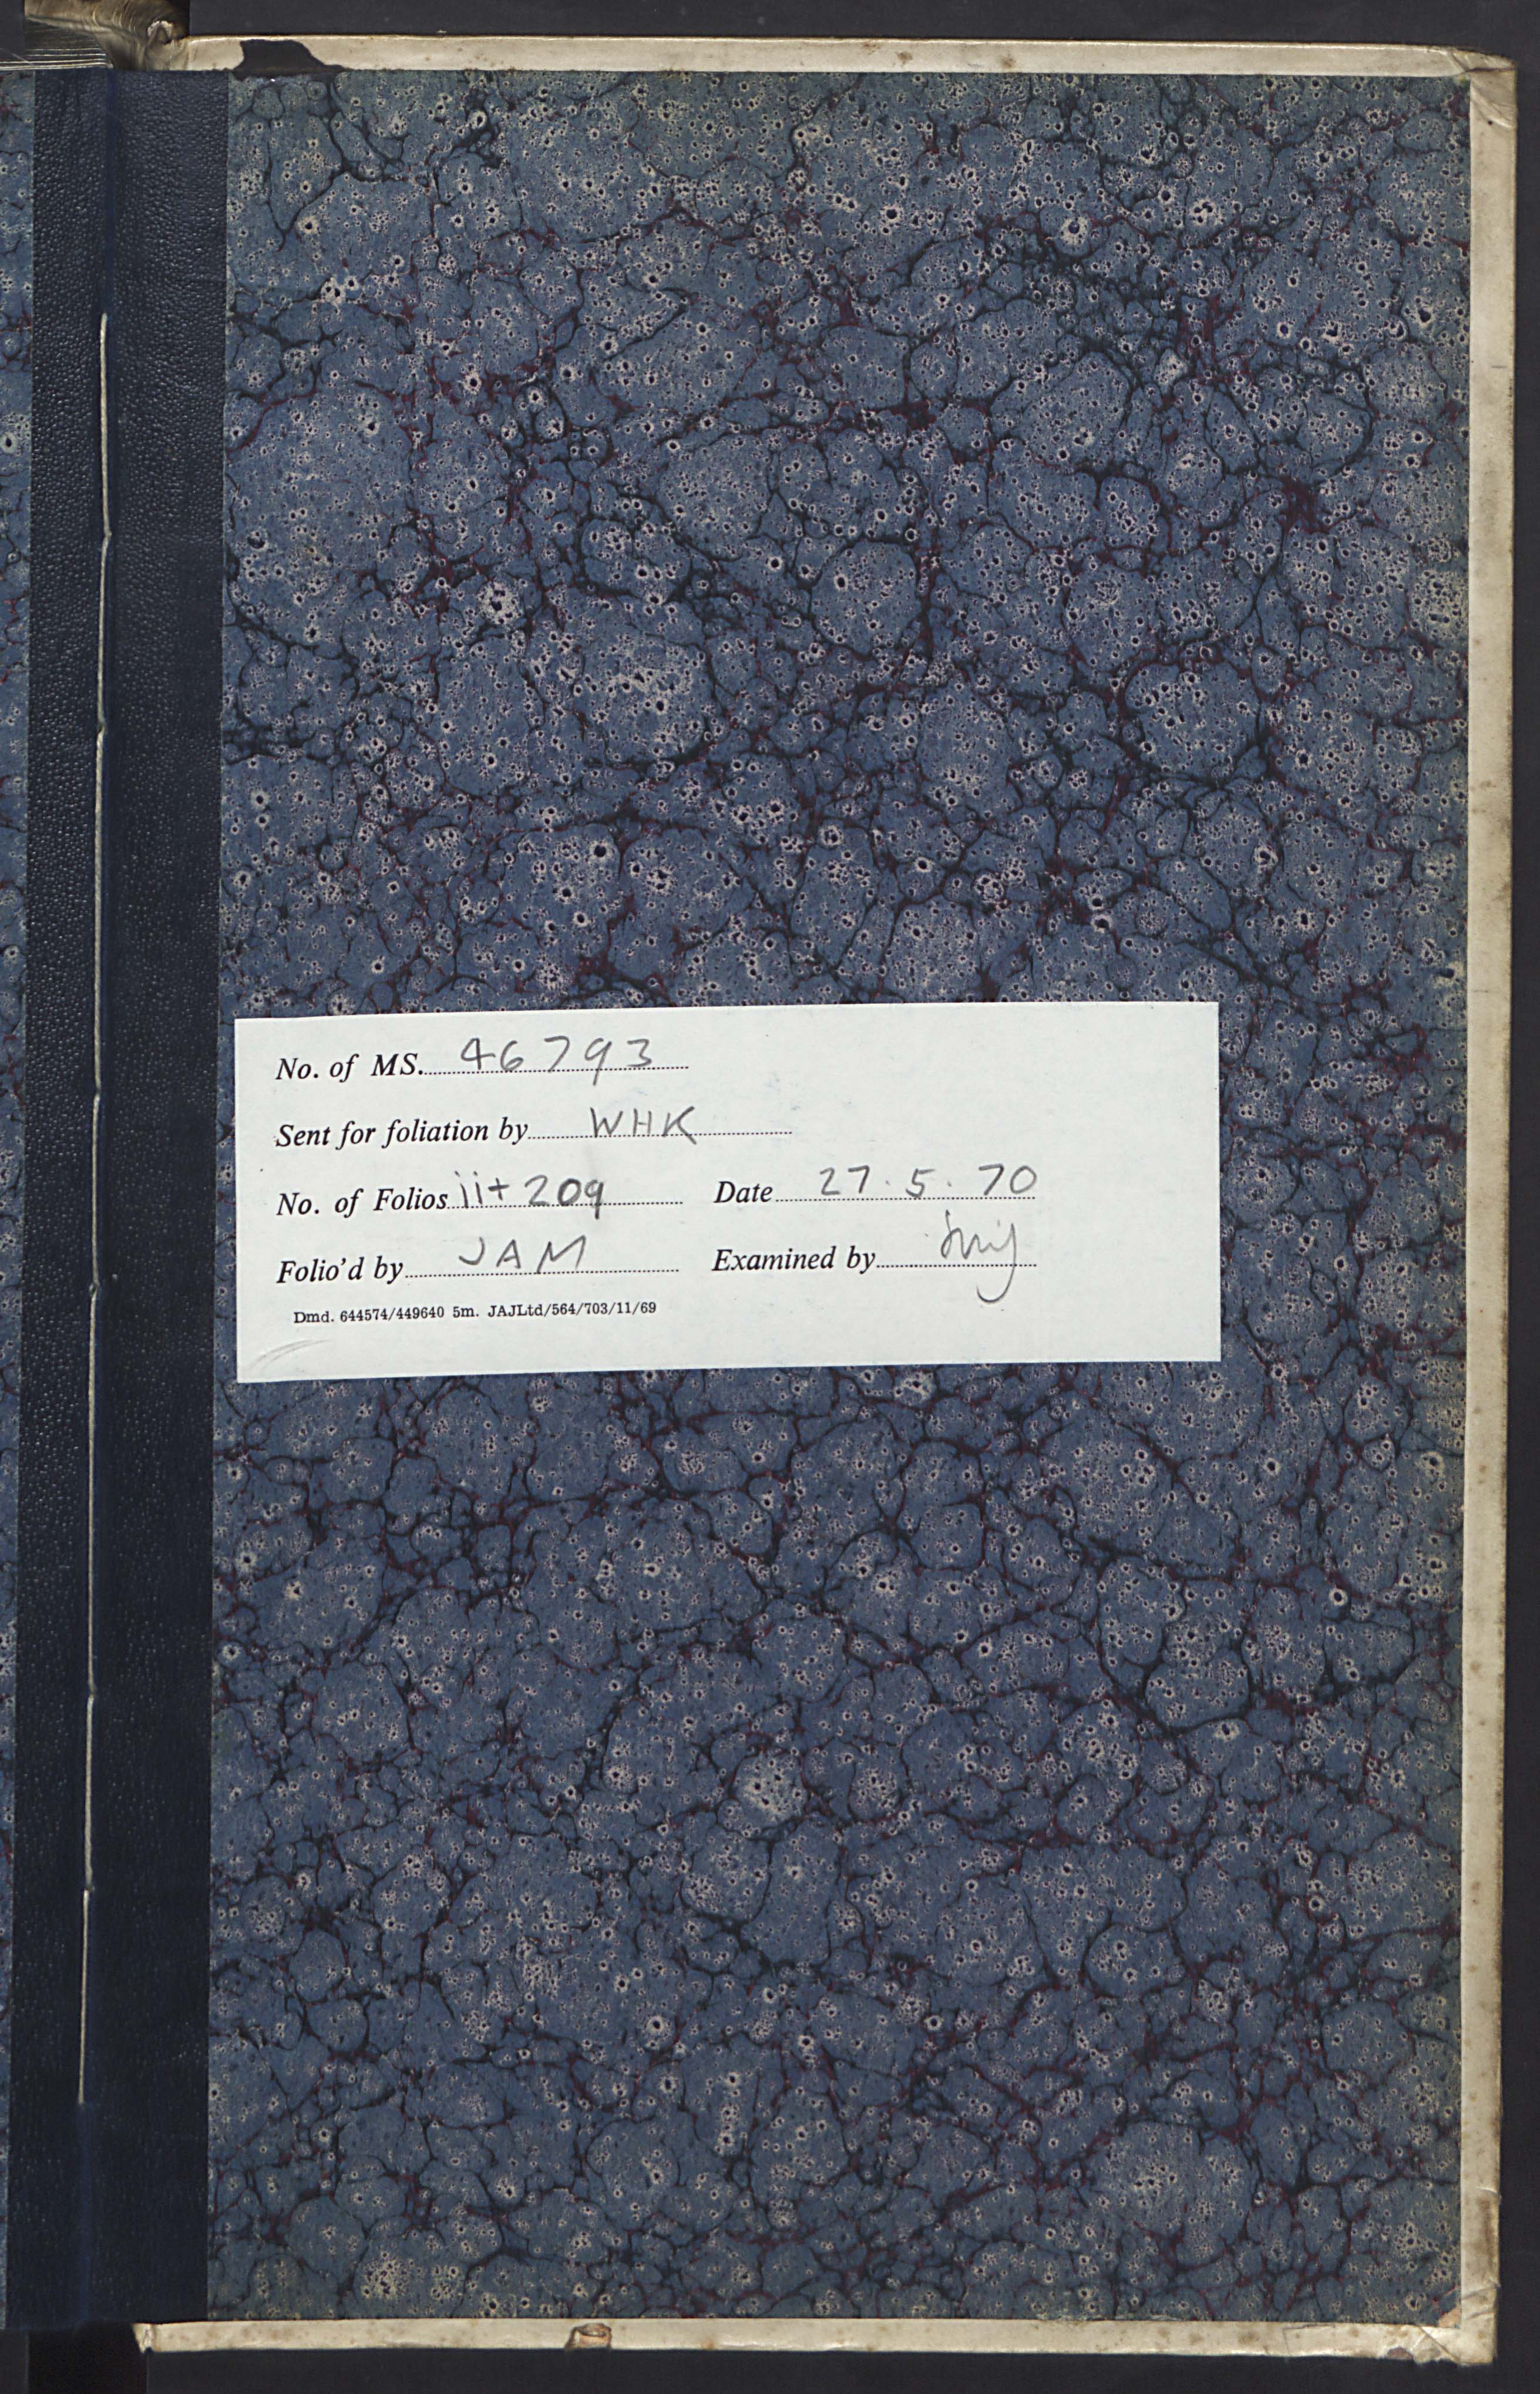 No. of MS. 46793
Sent for foliation by WHK
No. of Folios ii + 209 Date 27.5.70
Folio'd by JAM Examined by
Dmd. 644574/449640 5m. JAJLtd/564/703/11/69